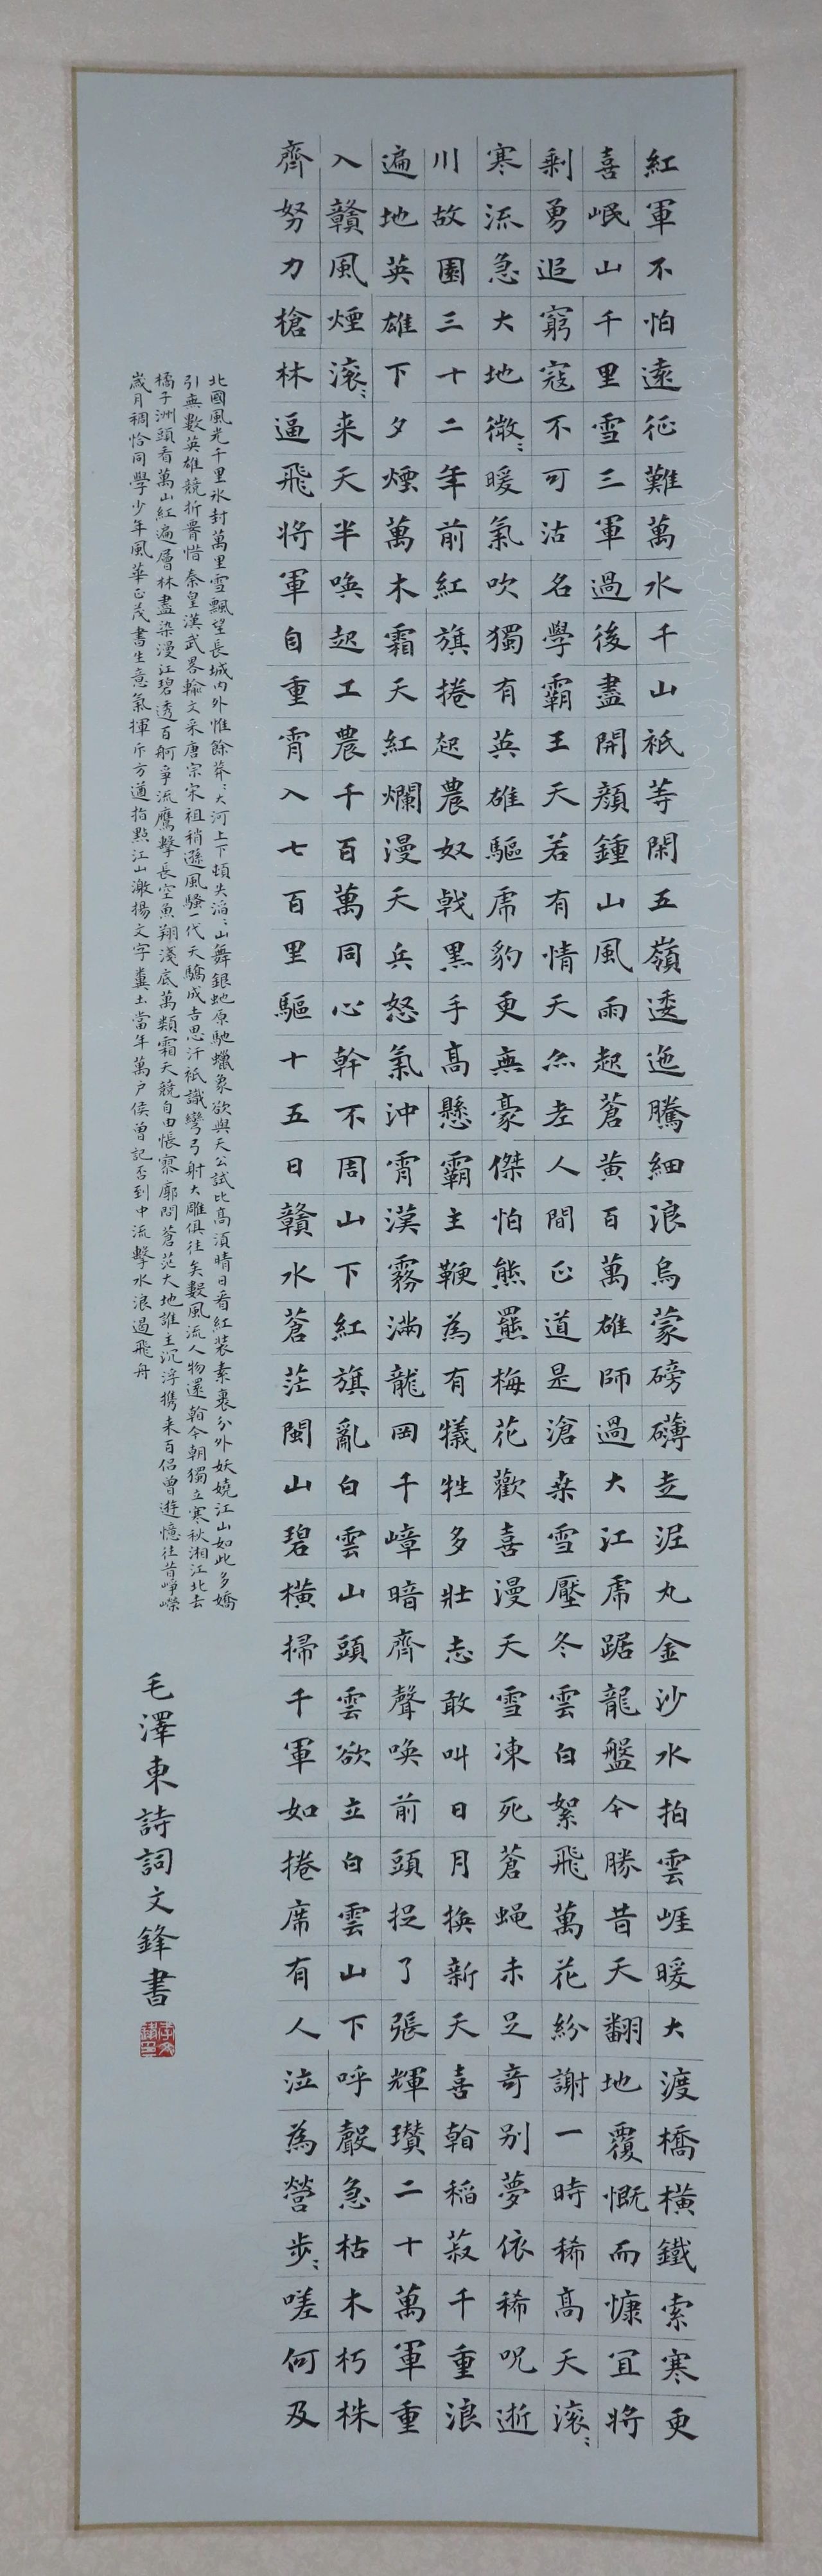 紅軍不怕遠征難萬水千山祇等閑五嶺逶迤騰細浪烏蒙磅礴走泥丸金沙水拍雲崖暖大渡橋橫鐵索寒更
喜岷山千里雪三軍過後盡開顏鍾山風雨起蒼黃百萬雄師過大江虎踞龍盤今勝昔天翻地覆慨而慷宜將
剩勇追窮寇不可沽名學霸王天若有情天亦老人間正道是滄桑雪壓冬雲白絮飛萬花紛謝一時稀高天滚〻
寒流急大地微〻暖氣吹獨有英雄驅虎豹更無豪傑怕熊羆梅花歡喜漫天雪凍死蒼蝇未足奇别夢依稀咒逝
川故園三十二年前紅旗捲起農奴戟黑手高懸霸主鞭為有犧牲多壯志敢叫日月換新天喜看稻菽千重浪
遍地英雄下夕煙萬木霜天紅爛漫天兵怒氣沖霄漢霧滿龍岡千嶂暗齊聲唤前頭捉了張輝瓚二十萬軍重
入贛風煙滚〻来天半唤起工農千百萬同心幹不周山下紅旗亂白雲山頭雲欲立白雲山下呼聲急枯木朽株
齊努力槍林逼飛將軍自重霄入七百里驅十五日贛水蒼茫閩山碧橫掃千軍如捲席有人泣為營步〻嗟何及
北國風光千里氷封萬里雪飄望長城内外惟餘莽〻大河上下頓失滔〻山舞銀蛇原馳蠟象欲與天公試比高須晴日看紅装素裹分外妖嬈江山如此多嬌
引無數英雄競折腰惜秦皇漢武畧輸文采唐宗宋祖稍遜風騷一代天驕成吉思汗祇識彎弓射大雕俱往矣數風流人物還看今朝獨立寒秋湘江北去
橘子洲頭看萬山紅遍層林盡染漫江碧透百舸爭流鷹擊長空魚翔淺底萬類霜天競自由悵寥廓問蒼茫大地誰主沉浮携来百侣曾遊憶往昔崢嶸
歲月稠恰同學少年風華正茂書生意氣揮斥方遒指點江山激揚文字糞土當年萬户侯曾記否到中流擊水浪遏飛舟
毛澤東詩詞文鋒書